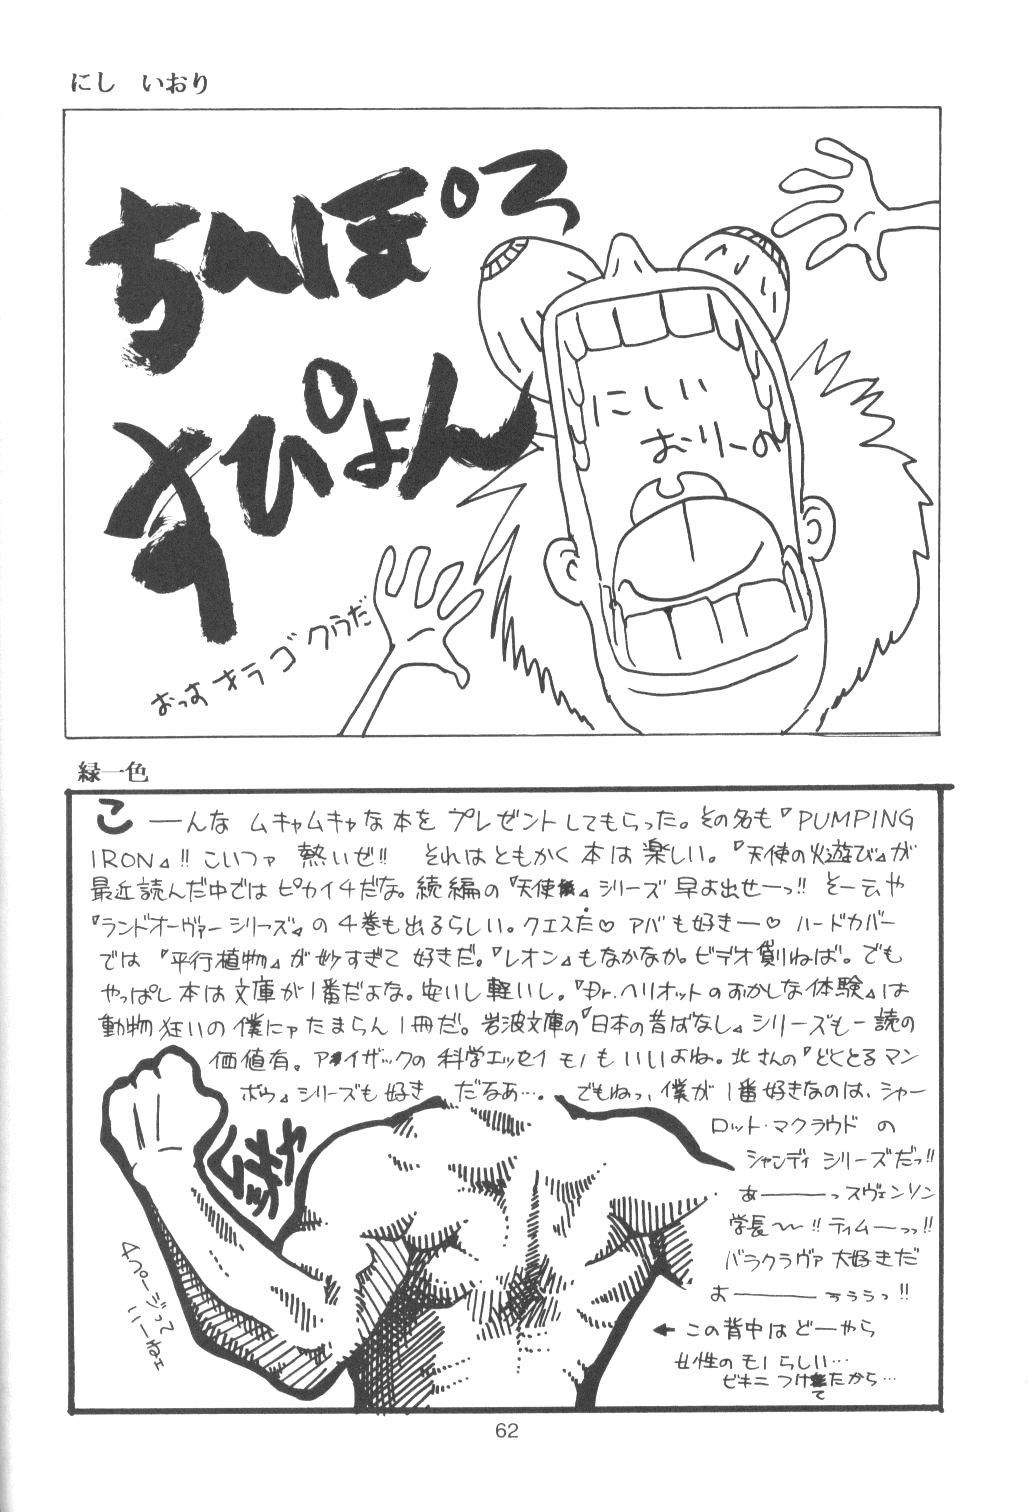 にし　いおり
ちんぽろ
すぴょん
にしい
おりーの
おっすオラゴクウだ
緑一色
こーんな ムキャムキャな本を プレゼントしてもらった。その名も『PUMPING
IRON』!! こいつァ 熱いぜ!! それはともかく 本は楽しい。『天使の火遊び』が
最近読んだ中では ピカイチだな。続編の『天使』シリーズ 早よ出せーっ!! そーいや
『ランドオーヴァーシリーズ』の4巻も出るらしい。クエスた♡ アバも好きー♡ ハードカバー
では 『平行植物』が妙すぎて 好きだ。『レオン』もなかなか。ビデオ買わねば。でも
やっぱし本は文庫が1番だよな。安いし軽いし。『Dr.ヘリオットのおかしな体験』は
動物狂いの僕にァたまらん1冊だ。岩波文庫の『日本の昔ばなし』シリーズも一読の
価値有。アイザックの 科学エッセイ モノもいいよね。北さんの『どくとるマン
ボウ』シリーズも好き だなあ…。でもねっ、僕が1番好きなのは、シャー
ロット・マクラウド の
シャンディ シリーズだっ!!
あーーーっスヴェンソン
学長〜〜!! ティムーっっ!!
バラクラヴァ 大好きだ
おーーーぅぅぅっ!!
← この背中はどーやら
女性のモノらしい…
ビキニ つけてたから…
4ページって
いーねェ
62